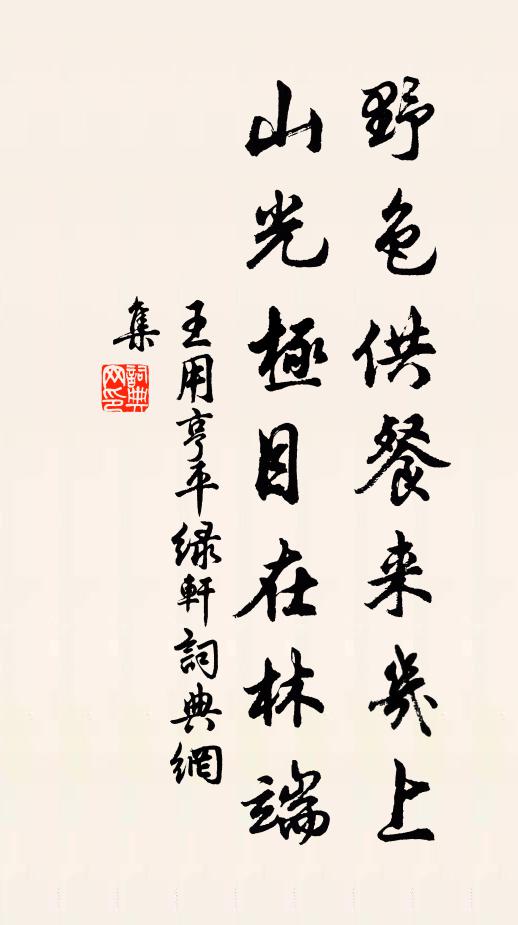 野色供餐来几上
山光極目在林端
王用亨平绿軒詞典網
集
詞典网印